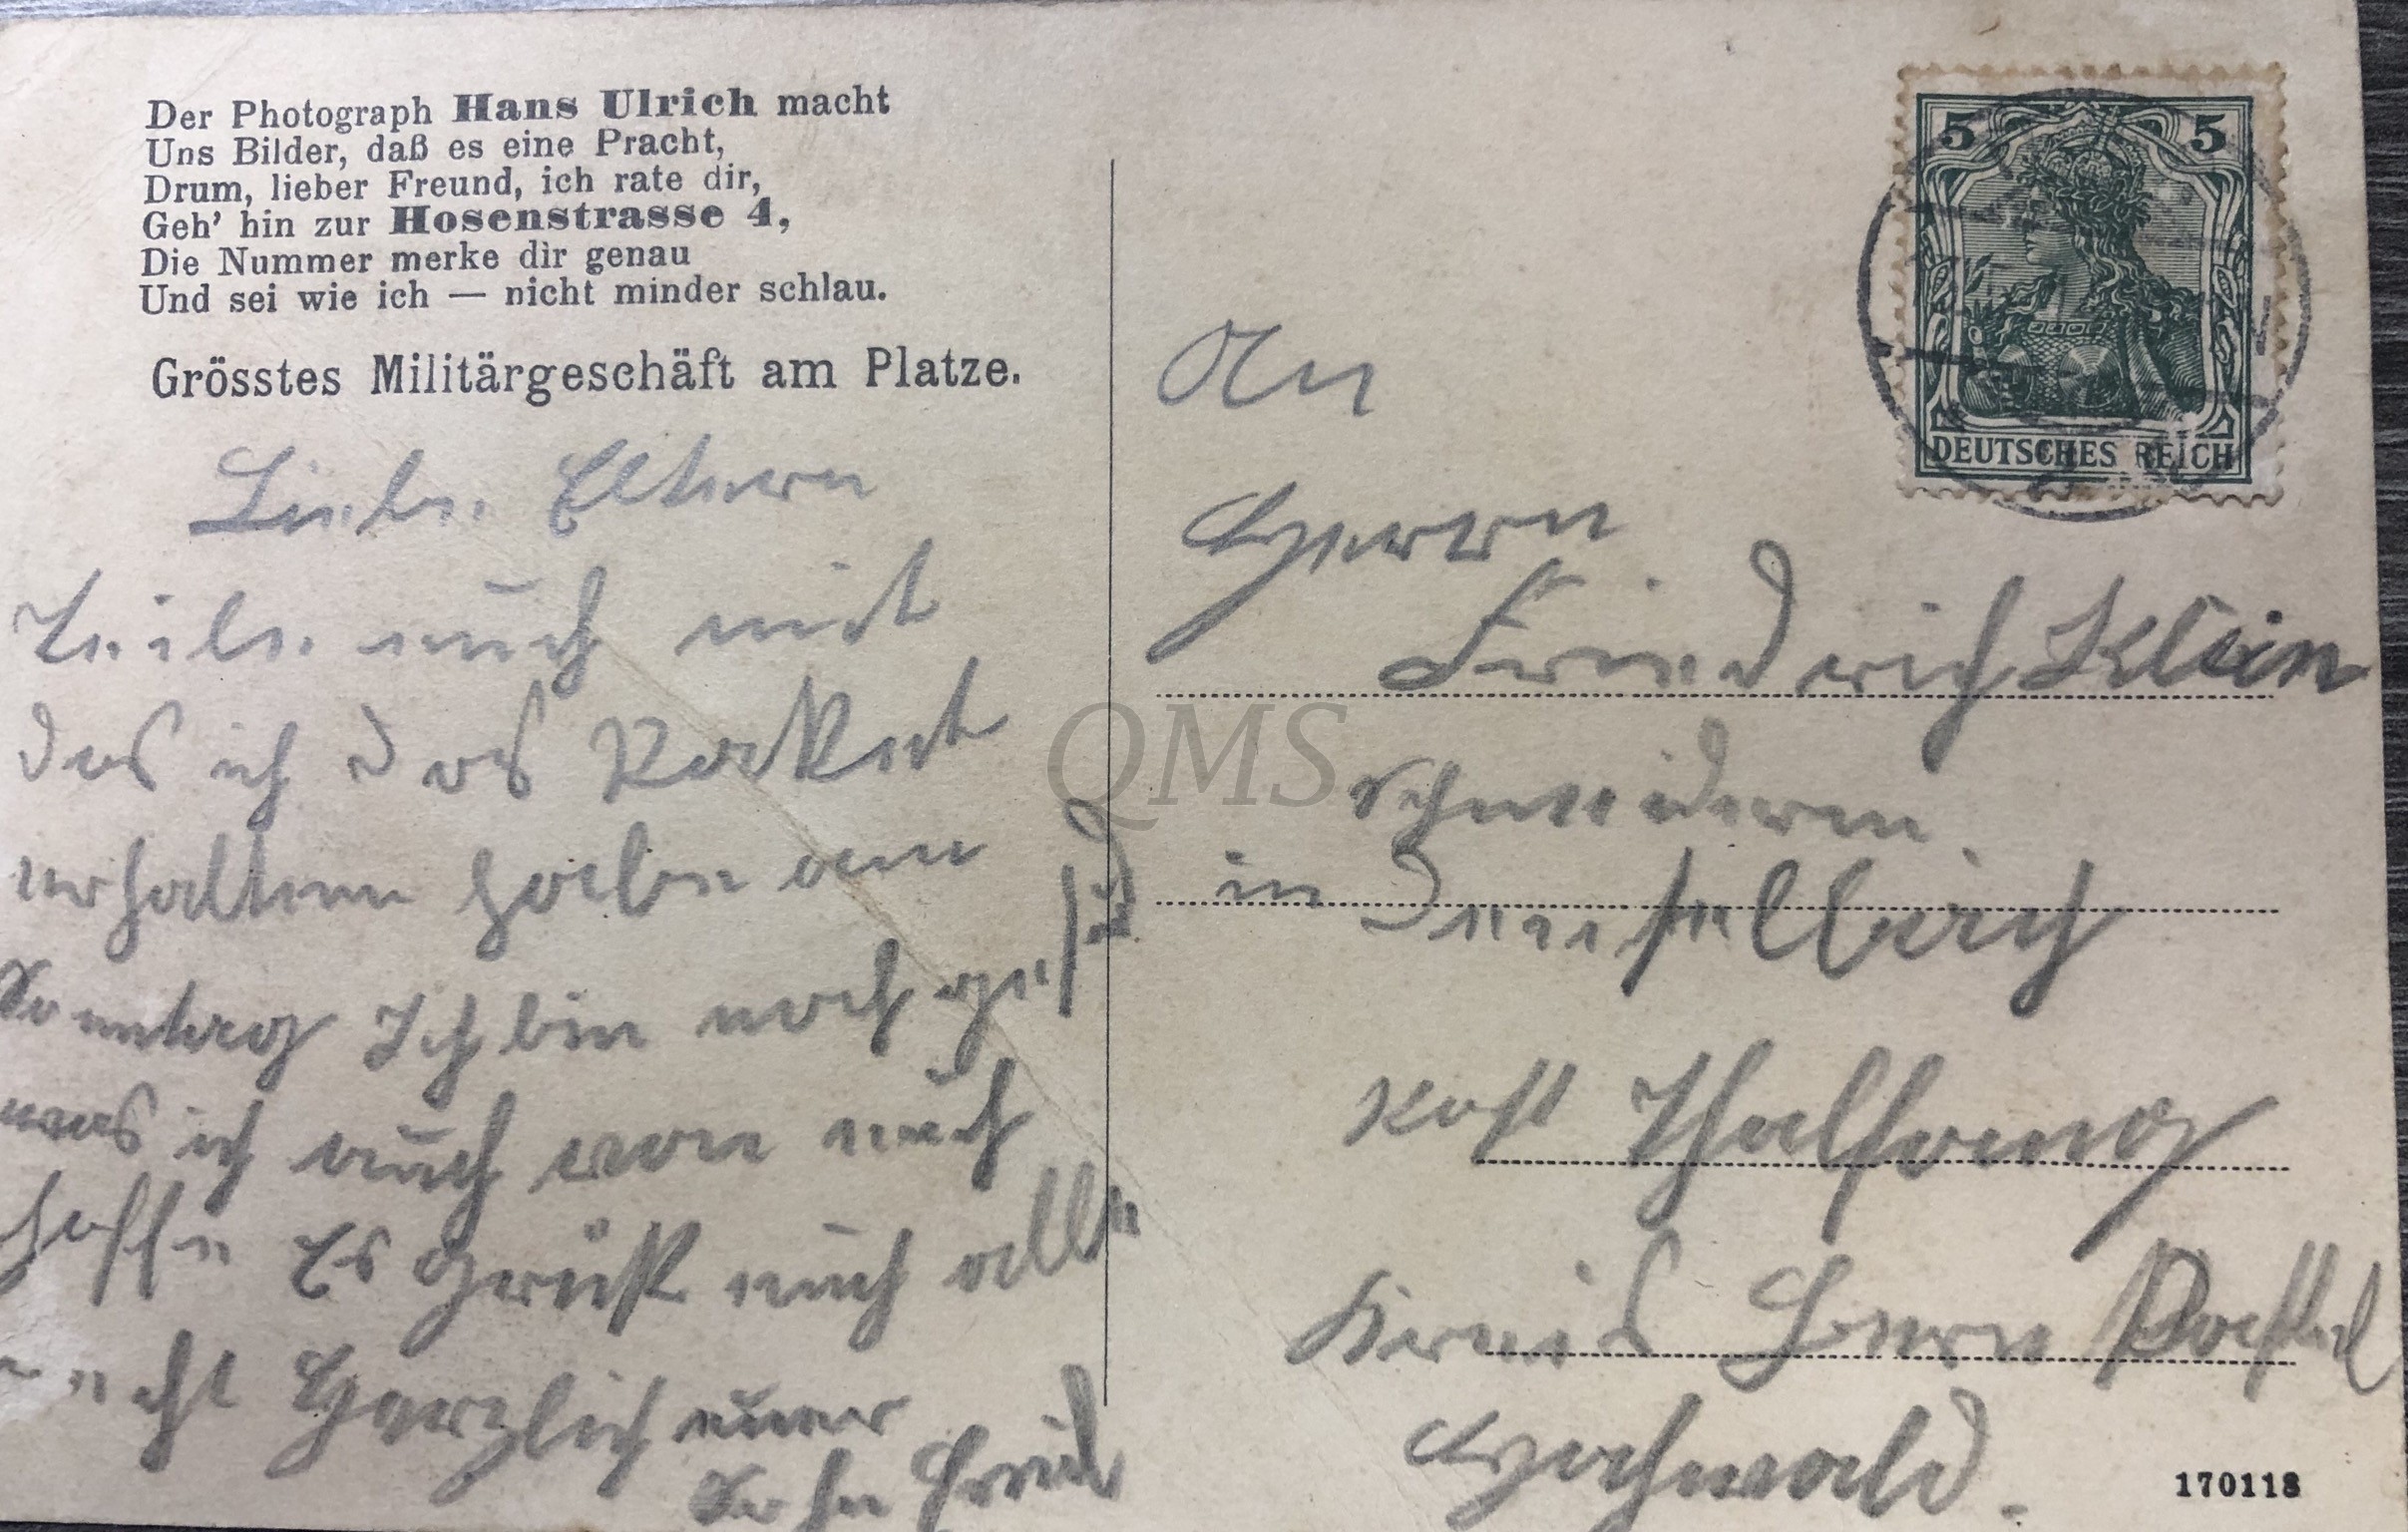 Der Photograph Hans Ulrich macht
Uns Bilder, daß es eine Pracht,
Drum, lieber Freund, ich rate dir,
Geh' hin zur Hosenstrasse 4,
Die Nummer merke dir genau
Und sei wie ich — nicht minder schlau.
Grösstes Militärgeschäft am Platze.
Liebe Eltern
teile euch mit
das ich das Packet
erhalten habe am
Sonntag Ich bin noch gesund
was ich auch von euch
hoffe Es Grüßt euch alle
recht Herzlich euer
Sohn
5 5
DEUTSCHES REICH
An
Herrn
Friedrich Klein
in
Post Thalfang
Kreis Bern Kastel
Hochwald.
170118
QMS